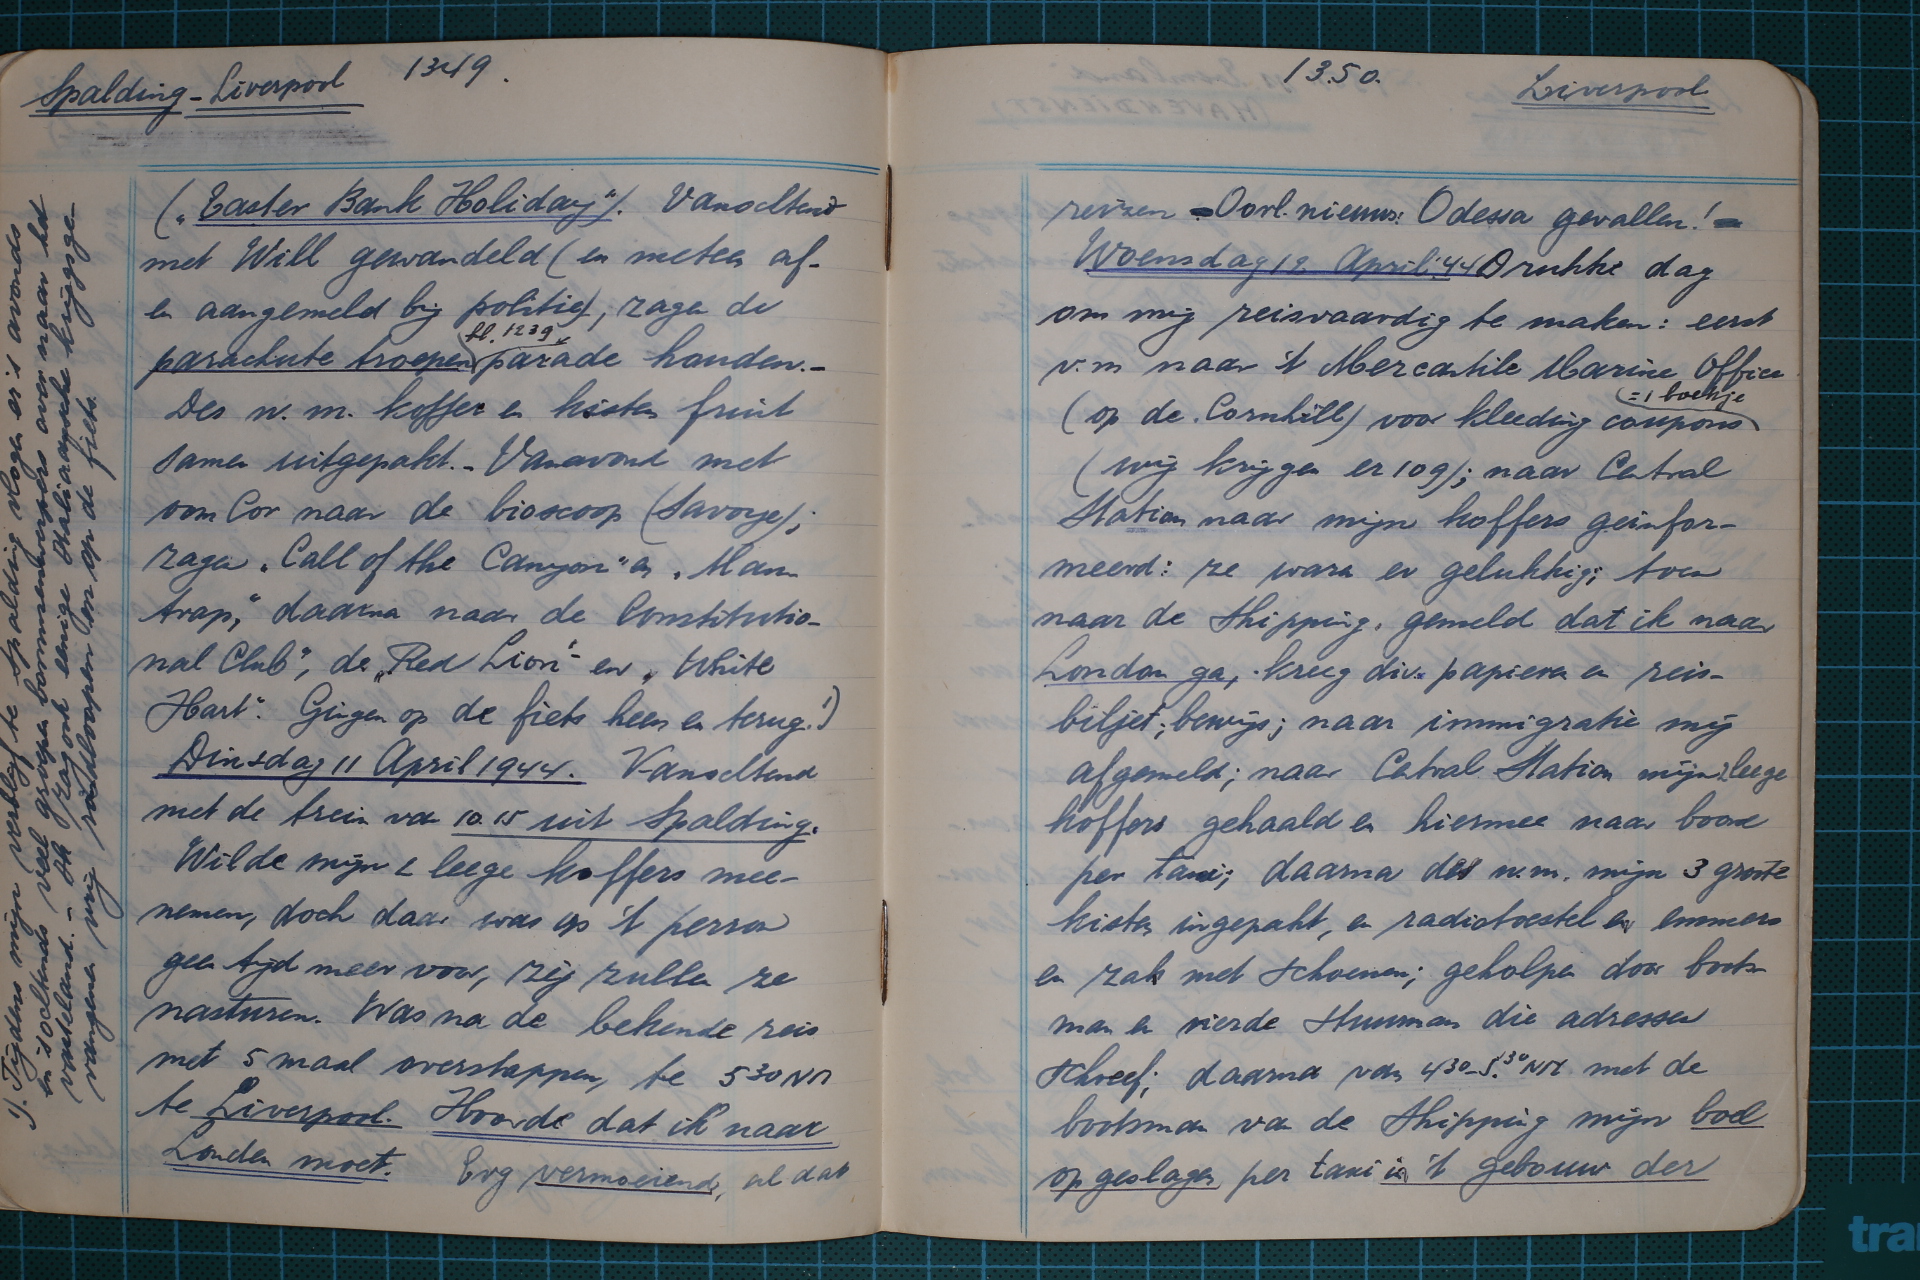 Spalding - Liverpool
1349.
("Easter Bank Holiday"). Vanochtend
met Will gewandeld (en meteen af-
en aangemeld bij politie), zagen de
bl. 1239
parachute troepen parade houden. -
Des n.m. koffer en kisten fruit
samen uitgepakt. - Vanavond met
oom Cor naar de bioscoop (Savoye);
zagen "Call of the Canyon" en "Man
trap," daarna naar de Constitutio-
nal Club", de "Red Lion" en "White
Hart". Gingen op de fiets heen en terug. 1)
Dinsdag 11 April 1944. Vanochtend
met de trein van 10.15 uit Spalding.
Wilde mijn 2 leege koffers mee-
nemen, doch daar was op 't perron
geen tijd meer voor, zij zullen ze
nasturen. Was na de bekende reis
met 5 maal overstappen, te 5 30 NM
te Liverpool. Hoorde dat ik naar
Londen moet. Erg vermoeiend, al dat
1). Tijdens mijn verblijf te Spalding vlogen er 's avonds
en 's ochtends veel groepen bommenwerpers over naar het
vasteland. - Ook zag ik eenige Italiaansche krijgsge-
vangenen vrij rondloopen en op de fiets.
1350.
Liverpool
reizen - Oorl. nieuws: Odessa gevallen! -
Woensdag 12 April '44 Drukke dag
om mij reisvaardig te maken: eerst
v.m naar 't Mercantile Marine Office
= 1 boekje
(op de Cornhill) voor kleeding coupons
(wij krijgen er 109); naar Central
Station naar mijn koffers geinfor-
meerd: ze waren er gelukkig; toen
naar de Shipping, gemeld dat ik naar
London ga, kreeg div. papieren en reis-
biljet, bewijs; naar immigratie mij
afgemeld; naar Central Station mijn 2 leege
koffers gehaald en hiermee naar boord
per taxi; daarna des n.m. mijn 3 groote
kisten ingepakt, en radiotoestel en emmers
en zak met schoenen; geholpen door boots-
man en vierde stuurman die adressen
schreef; daarna van 4 30 - 5. 30 NM met de
bootsman van de Shipping mijn boel
opgeslagen per taxi in 't gebouw der